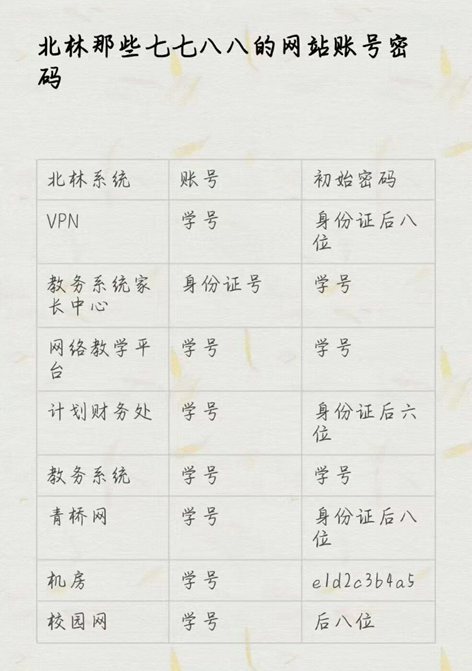 北林那些七七八八的网站账号密
码
北林系统 账号 初始密码
VPN 学号 身份证后八
位
教务系统家 身份证号 学号
长中心
网络教学平 学号 学号
台
计划财务处 学号 身份证后六
位
教务系统 学号 学号
青桥网 学号 身份证后八
位
机房 学号 e1d2c3b4a5
校园网 学号 后八位